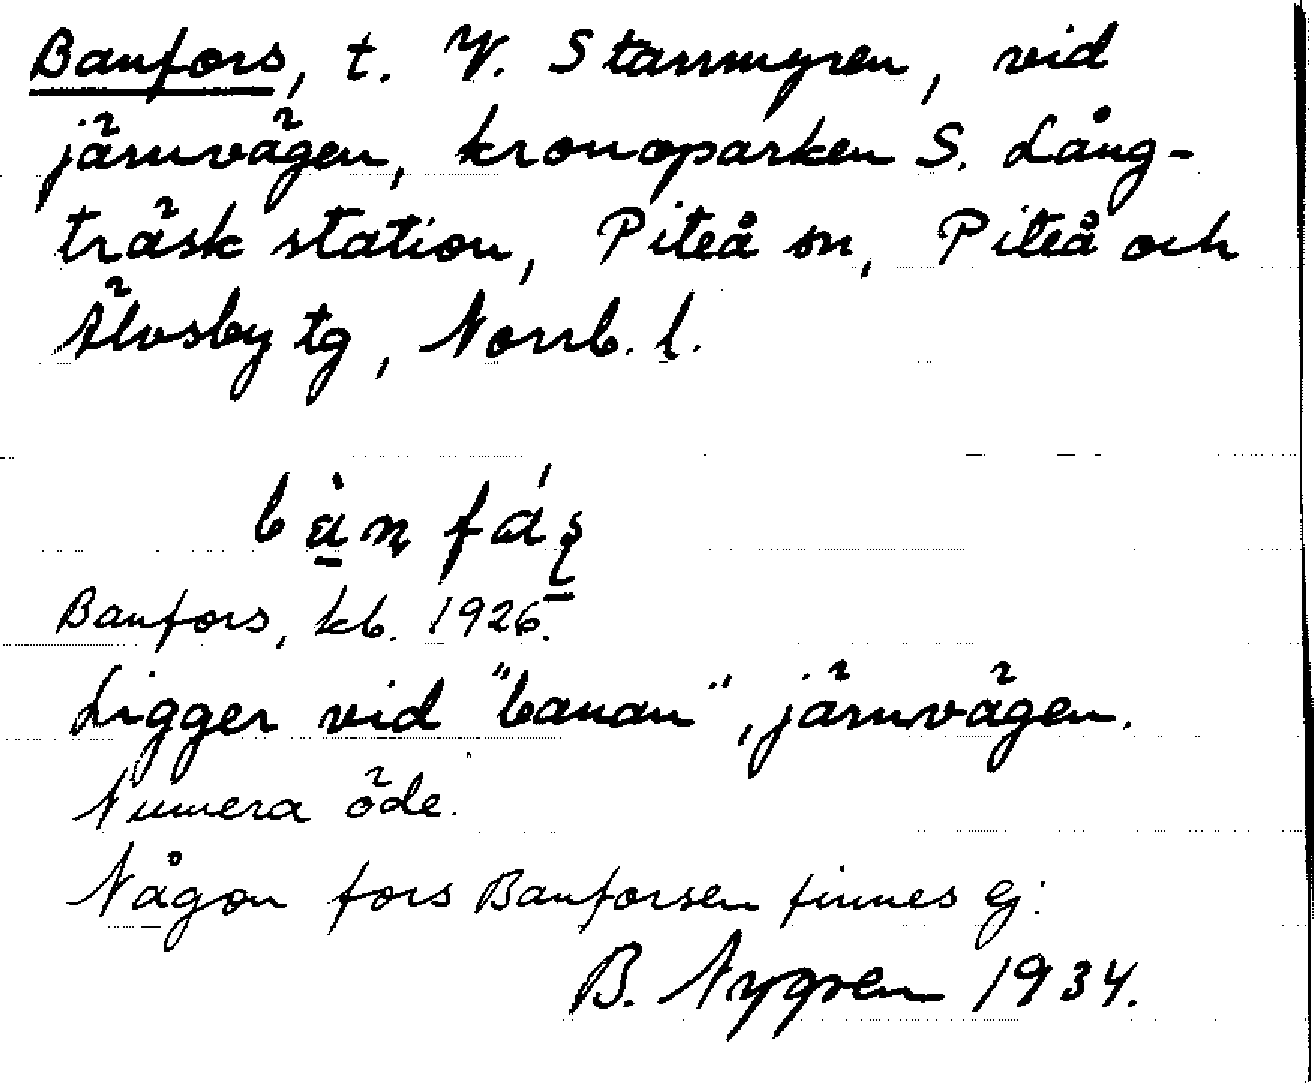 Banfors, t. V. Starrmyren, vid
järnvägen, kronoparken S. Lång-
träsk station, Piteå sn, Piteå och
Älvsby tg, Norrb. l.
Banfors, kb. 1926.
Ligger vid "banan", järnvägen.
Numera öde.
Någon fors Banforsen finnes ej.
B. Nygren 1934.